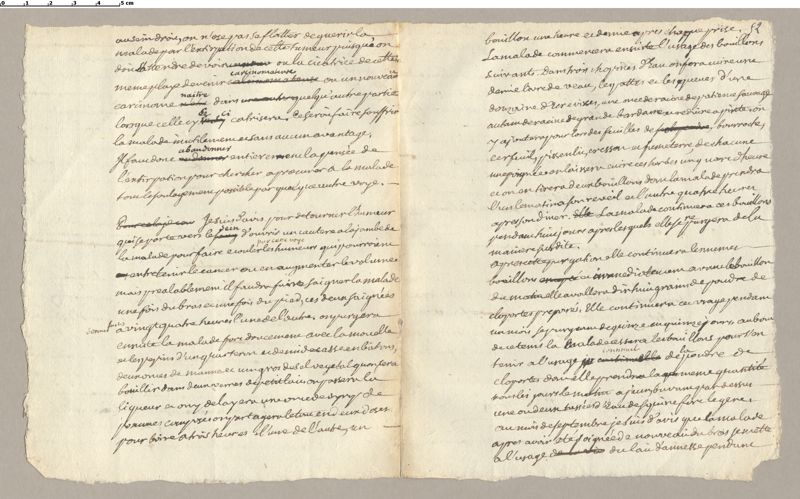 0 1 2 3 4 5 cm
au sein droit, on n'ose pas se flatter de guerir la
malade par l'extirpation de cette tumeur puisqu'on
doit attendre de voir ou la cicatrice de cette
meme playe devenir carcinomateuse ou un nouveau
carcinome naitre dans quelqu'autre partie
lorsque celle cy cicatrisee. Ce seroit faire souffrir
la malade inutilement et sans aucun avantage.
Il faut donc abandonner entierement la pensée de
l'extirpation pour chercher a procurer a la malade
tout le soulagement possible par quelqu'autre voye.
Je suis d'avis pour detourner l'humeur
qui se porte vers le sein d'ouvrir un cautere a la jambe de
la malade pour faire ecouler les humeurs qui pourroient
par cette voye
entretenir le cancer ou en augmenter le volume
mais prealablement il faudra faire saigner la malade
une fois du bras et une fois du pied, ces deux saignées
a vingt quatre heures l'une de l'autre, on purgera
ensuite la malade fort doucement avec la mouelle
et les pepins d'un quarteron et demi de casse en bâtons,
deux onces de manne et un gros de sel vegetal qu'on fera
bouillir dans deux verres de petit lait on passera la
liqueur et on y delayera une once de syrop de
pommes composé on partagera le tout en deux doses
pour boire a trois heures l'une de l'autre, un
52
bouillon une heure et demie apres chaque prise.
La malade commencera ensuite l'usage des bouillons
suivants. dans trois chopines d'eau on fera cuire une
demie livre de veau, les pattes et les queues d'une
douzaine d'ecrevisses, une once de racine de patience sauvage
autant de racine de grande bardane
y ajoutera pour lors des feuilles de bourroche,
cerfeuil, pissenlit, cresson et fumeterre, de chacune
une poignée on laissera cuire ces herbes un quart d'heure
et on en tirera deux bouillons dont la malade prendra
l'un le matin a son reveil et l'autre quatre heures
apres son diner. La malade continuera ces bouillons
pendant huit jours apres lesquels elle se purgera de la
maniere susdite.
apres cette purgation elle continuera les memes
bouillons immediatement avant le bouillon
du matin elle avallera dix huit grains de poudre de
cloportes preparés. Elle continuera ce usage pendant
un mois se purgeant de quinze en quinze jours, au bout
de ce tems la malade cessera les bouillons pour s'en
tenir a l'usage continuel de la poudre de
cloportes dont elle prendra la meme quantité
tous les jours le matin a jeun buvant par dessus
une ou deux tasses d'eau de squine fort legere.
au mois de septembre je suis d'avis que la malade
apres avoir eté saignée de nouveau du bras se mette
a l'usage du lait d'annesse pendant